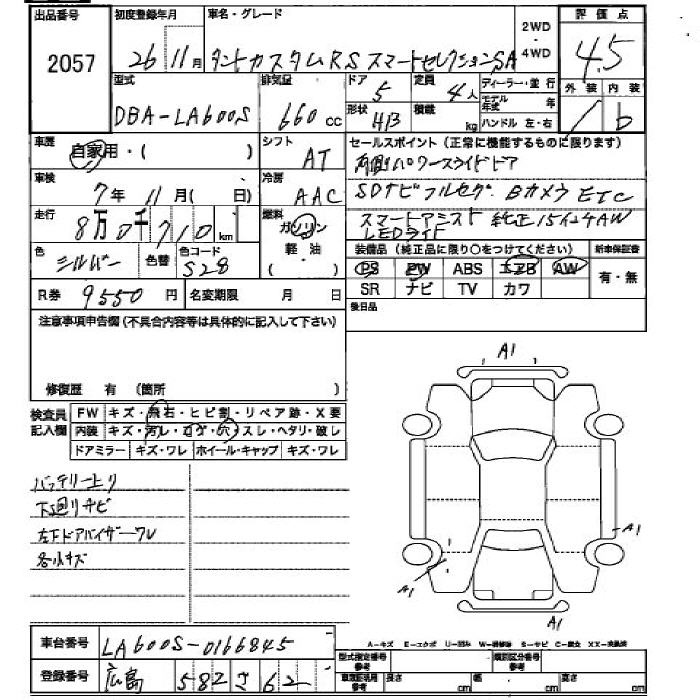 出品番号 初度登録年月 車名・グレード 2WD・4WD 評価点
2057 26年11月 タントカスタムRS スマートセレクションSA 4.5
型式 排気量 ドア 定員 ディーラー・並行 外装 内装
DBA-LA600S 660cc 5 4人 モデル年式 年
形状 4B 積載 kg ハンドル 左・右 b
車歴 自家用・( ) シフト AT セールスポイント(正常に機能するものに限ります)
両側パワースライドドア
車検 7年11月( 日) 冷房 AAC SDナビ フルセグ Bカメラ ETC
走行 8万0千710km 燃料 ガソリン 軽・油 ・( ) スマートアシスト 純正15インチAW
LEDライト
色 シルバー 色替 色コード S28 装備品(純正品に限り○をつけてください) 新車保証書
PS PW ABS エアB AW 有・無
R券 9550円 名変期限 月 日 SR ナビ TV カワ
注意事項申告欄(不具合内容等は具体的に記入して下さい) 後日品
修復歴 有 (箇所 )
検査員記入欄 FW キズ・飛石・ヒビ割・リペア跡・X要
内装 キズ・汚レ・コゲ・穴・スレ・ヘタリ・破レ
ドアミラー キズ・ワレ ホイール・キャップ キズ・ワレ
A1
バッテリー上り
下回りサビ
左下ドアバイザーワレ
各小キズ
A1
A1
A1
A-キズ E-エクボ U-凹み W-補修跡 S-サビ C-腐食 XX-交換済
車台番号 LA600S-0166845
型式指定番号 参考 類別区分番号 参考
登録番号 広島 582 さ 62
車庫証明用 参考 長さ cm 幅 cm 高さ cm